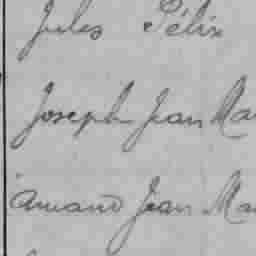 Jules Félix
Joseph Jean Ma
Amand Jean Ma